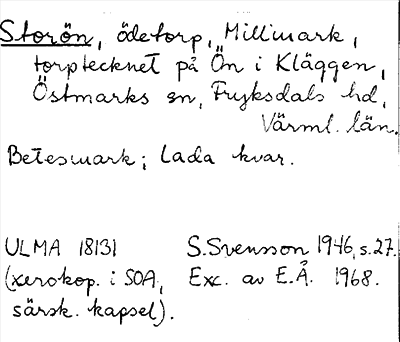 Storön, ödetorp, Millmark,
torptecknet på Ön i Kläggen,
Östmarks sn, Fryksdals hd,
Värml. län.
Betesmark; lada kvar.
ULMA 18131 S. Svensson 1946, s. 27.
(xerokop. i SOA, Exc. av E.Å. 1968.
särsk. kapsel).